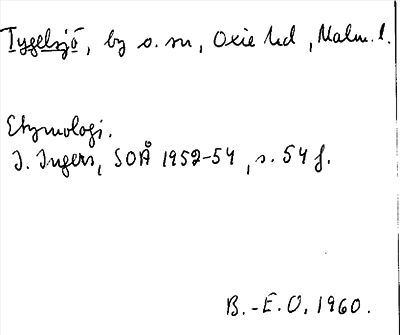 Tygelsjö, by o. sn, Oxie hd, Malm. l.
Etymologi.
I. Ingers, SOÅ 1952-54, s. 54 f.
B.-E.O. 1960.